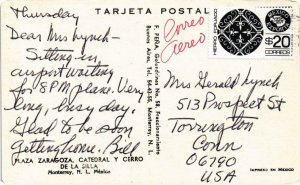 TARJETA POSTAL
Thursday
Dear Mrs Lynch—
Sitting in
airport waiting
for 5 PM plane. Very
long, busy day.
Glad to be soon
getting home. Bill
PLAZA ZARAGOZA, CATEDRAL Y CERRO
DE LA SILLA
Monterrey, N. L., México
F. PEÑA, Golondrinas No. 58, Fraccionamiento
Buenos Aires, Tel. Monterrey, N. L.
Correo
Aereo
$20
CORREOS
Mrs Gerald Lynch
513 Prospect St
Torrington
Conn
06790
USA
IMPRESO EN MEXICO